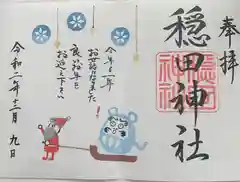 奉拝
穏田神社
今年も一年
お世話になりました!
良いお年を
お迎え下さい
令和二年十二月九日